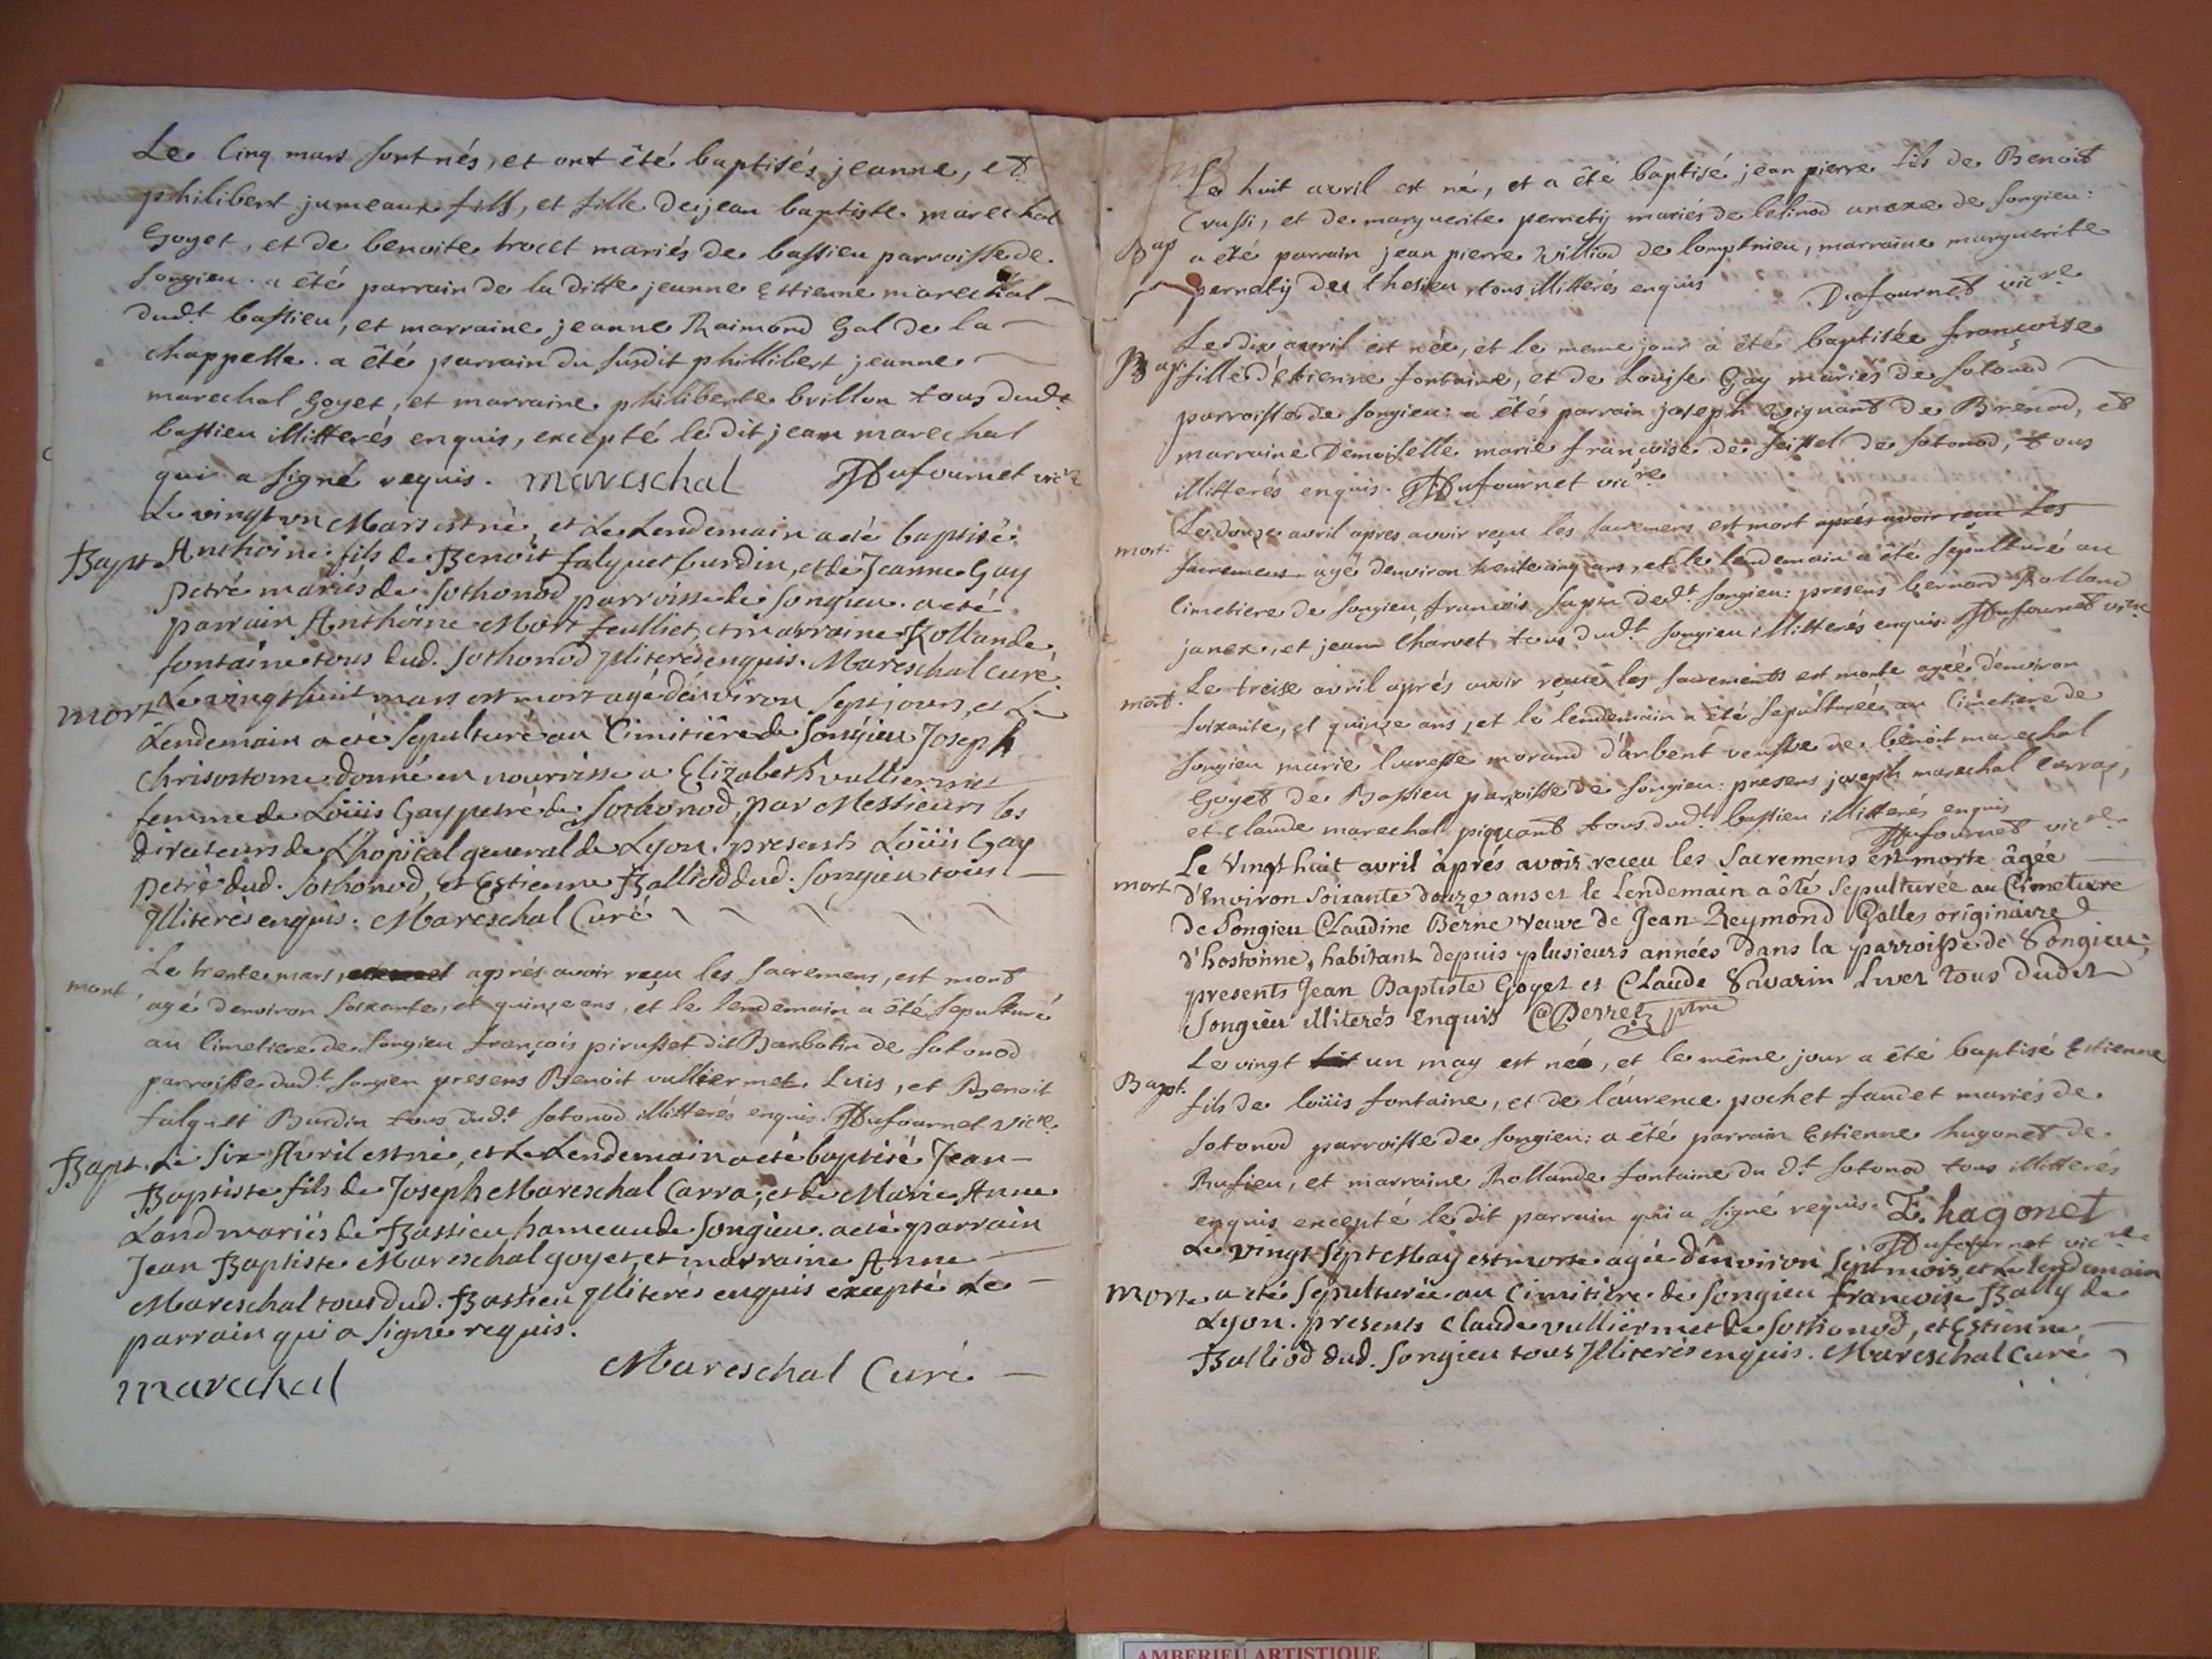 Le Cinq mars sont nés, et ont été baptisés jeanne, et
philibert jumeaux fils, et fille de jean baptiste marechal
Goyet, et de benoite trocet mariés de bassieu parroisse de
Songieu. a été parrain de la ditte jeanne Estienne marechal
dudt bassieu, et marraine jeanne Raimond Gal de la
chappelle. a été parrain du susdit phillibert jeanne
marechal Goyet, et marraine philiberte brillon tous dudt
bassieu illitterés enquis, excepté le dit jean marechal
qui a signé requis. mareschal Dufournet vicre
Le vingt un Mars est né, et Le Lendemain a été baptisé
Bapt. Anthoine fils de Benoit falquet burdin, et de Jeanne Gay
petré mariés de Sothonod parroisse de Songieu. a eté
parrain Anthoine Mort feulliet, et marraine Rollande
fontaine tous dud. Sothonod Illiterés enquis. Mareschal curé
mort Le vingt huit mars est mort agé d'environ Sept jours, et Le
Lendemain a été Sepulturé au Cimitiêre de Songieu Joseph
Chrisostome donné en nourrisse a Elizabeth vulliermet
femme de Loüis Gay petré de Sothonod, par Messieurs les
directeurs de L'hopital general de Lyon. presents Loüis Gay
petré dud. Sothonod, et Estienne Balliod dud. Songieu tous
Illiterés enquis. Mareschal Curé
Le trente mars, aprés avoir reçu les Sacremens, est mort
mort agé d'environ soixante, et quinze ans, et le lendemain a été sepulturé
au Cimetiere de Songieu françois pirusset dit Barbotin de Sotonod
parroisse dudt Songieu presens Benoit vulliermet Luis, et Benoit
falquet Burdin tous dudt Sotonod illitterés enquis. Dufournet Vicre
Bapt. Le Six Avril est né, et Le Lendemain a eté baptisé Jean
Baptiste fils de Joseph Mareschal Carra, et de Marie Anne
Land mariés de Bassieu hameau de Songieu. a eté parrain
Jean Baptiste Mareschal goyet, et marraine Anne
Mareschal tous dud. Bassieu Illiterés enquis excepté Le
parrain qui a signé requis.
marechal Mareschal Curé
Le huit avril est né, et a été baptisé jean pierre fils de Benoit
Crussi, et de marguerite pernety mariés de lesinod anexe de Songieu:
Bap a été parrain jean pierre Villiod de lompnieu, marraine marguerite
pernety de thesieu, tous illitterés enquis Dufournet vicre
Le dix avril est née, et le meme jour a été baptisée françoise
Bap. fille d'Etienne fontaine, et de Louise Gay mariés de Sotonod
parroisse de Songieu: a étés parrain joseph vignant de Brenod, et
marraine Demoiselle marie françoise de seissel de Sotonod, tous
illitterés enquis. Dufournet vicre
Le douze avril apres avoir reçu les Sacremens est mort aprés avoir reçu Les
mort. Sacremens agé d'environ trente cinq ans, et le lendemain a été Sepulturé au
Cimetiere de Songieu, francois Sapin dudt Songieu: presens bernard Rolland
janex, et jean Charvet tous dudt Songieu illitterés enquis. Dufournet vicre
Le treise avril aprés avoir reçuë les sacrements est morte agée d'environ
mort. soixante, et quinze ans, et le lendemain a été Sepulturée au Cimetiere de
Songieu marie lucresse morand d'arbent veusve de bénoit marechal
Goyet de Bassieu parroisse de Songieu: presens joseph marechal Carraz,
et Claude marechal piquant tous dudt bassieu illitterés enquis
Dufournet vicre
Le Vingt huit avril âprés avoir receu les Sacremens est morte âgée
mort d'Environ soixante douze ans et le Lendemain a êté Sepulturée au Cimetiere
de Songieu Claudine Berne Veuve de Jean Reymond Galles originaire
d'hostonne, habitant depuis plusieurs années dans la parroisse de Songieu,
presents Jean Baptiste Goyet et Claude Savarin Luez tous dudet
Songieu illiterés Enquis Perret ptre
Le vingt un may est né, et le même jour a été baptisé Estienne
Bapt. fils de loüis fontaine, et de laurence pochet faudet mariés de
Sotonod parroisse de Songieu: a été parrain Estienne hugonet de
Rufieu, et marraine Rollande fontaine du dt Sotonod tous illitterés
enquis excepté le dit parrain qui a signé requis. E. hagonet
Dufournet vicre
Le vingt Sept May est morte agée d'environ Sept mois, et Le lendemain
Morte a eté Sepulturée au Cimitiere de Songieu francoise Bally de
Lyon. presents Claude vulliermet de Sothonod, et Estienne
Balliod dud. Songieu tous Illiterés enquis. Mareschal Curé
AMBERIEU ARTISTIQUE